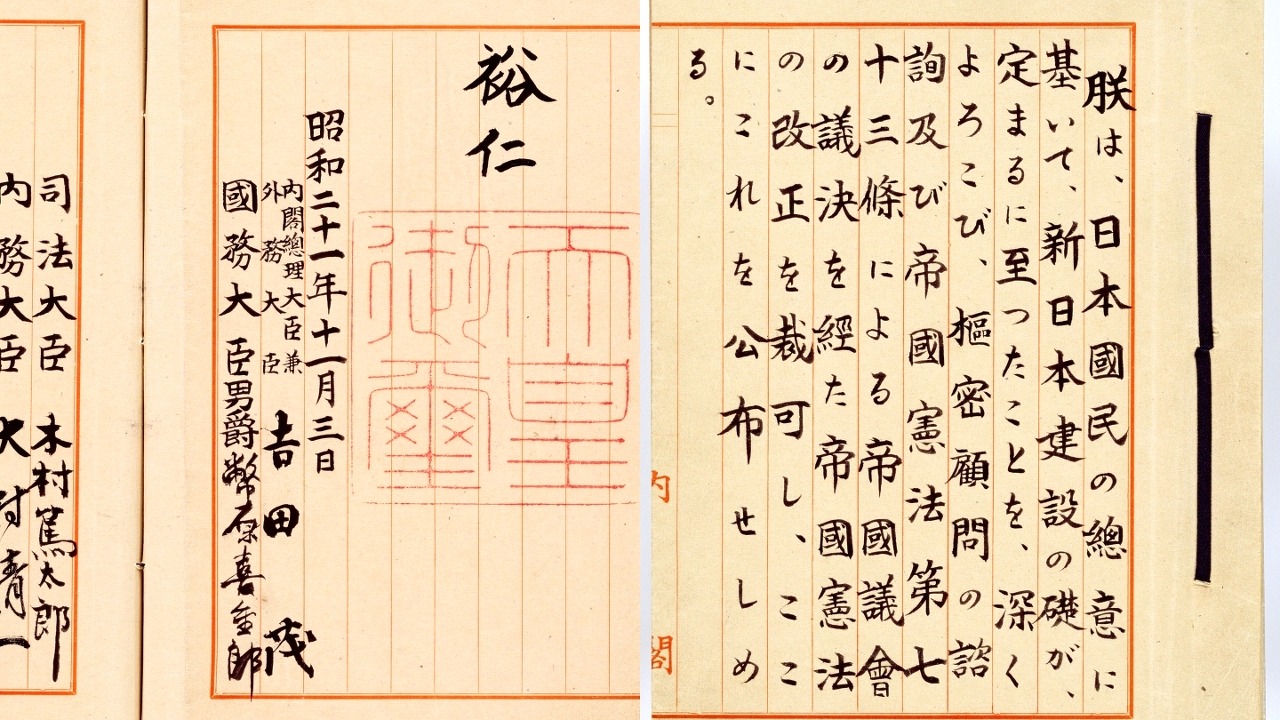 朕は、日本國民の總意に
基いて、新日本建設の礎が、
定まるに至つたことを、深く
よろこび、樞密顧問の諮
詢及び帝國憲法第七
十三條による帝國議會
の議決を經た帝國憲法
の改正を裁可し、ここ
にこれを公布せしめ
る。
内閣
裕仁
天皇御璽
昭和二十一年十一月三日
内閣總理大臣兼
外務大臣 吉田茂
國務大臣男爵幣原喜重郎
司法大臣 木村篤太郎
内務大臣 大村清一